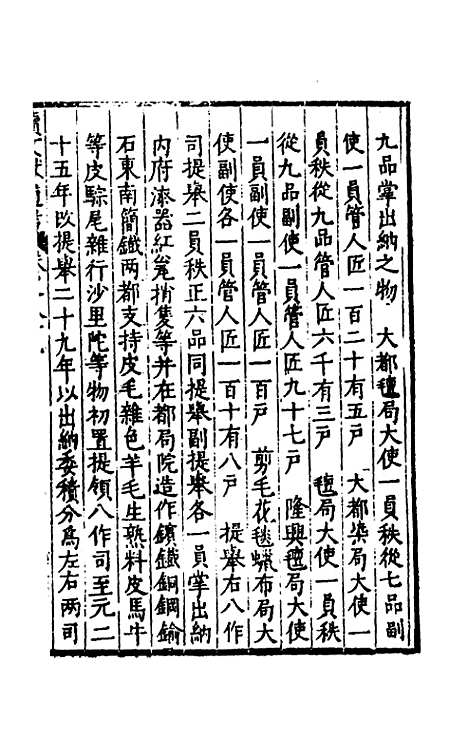 九品掌出納之物　大都氊局大使一員秩從七品副
使一員管人匠一百二十有五戸　大都染局大使一
員秩從九品管人匠六千有三戸　氊局大使一員秩
從九品副使一員管人匠九十七戸　隆興氊局大使
一員副使一員管人匠一百戸　剪毛花毯蠟布局大
使副使各一員管人匠一百十有八戸　提舉右八作
司提舉二員秩正六品同提舉副提舉各一員掌出納
内府漆器紅甕捎隻等并在都局院造作鑌鐵銅鋼鍮
石東南簡鐵两都支持皮毛雜色羊毛生熟料皮馬牛
等皮騌尾雜行沙里陀等物初置提領八作司至元二
十五年以提舉二十九年以出納委積分爲左右两司